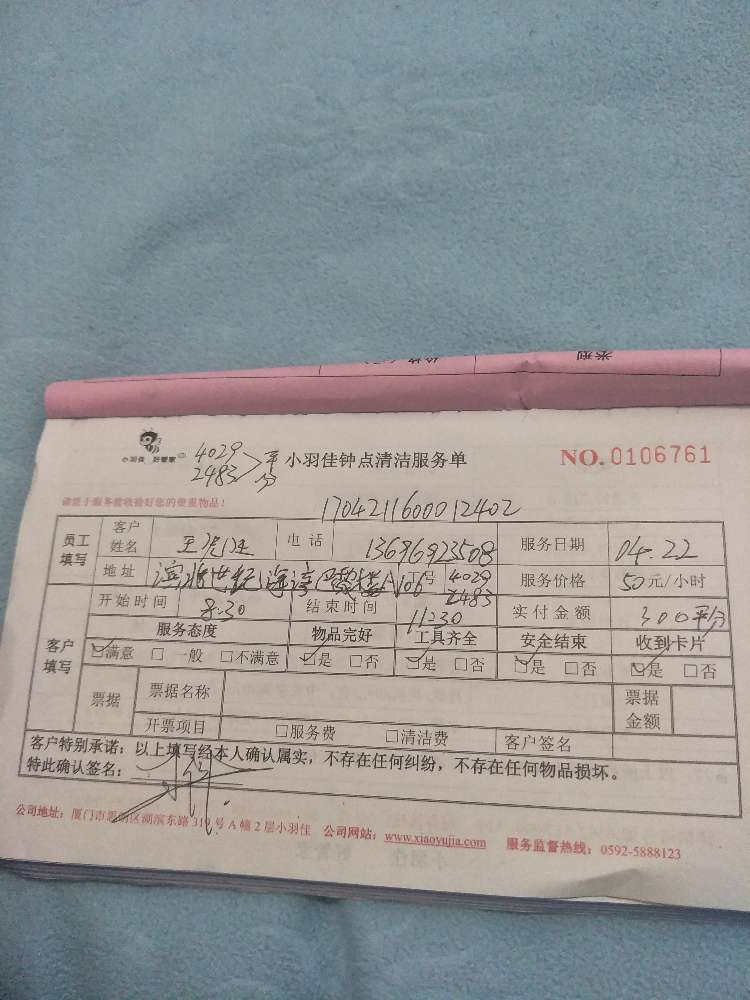 类型
小羽佳 好管家
4029
2483 > 平分
小羽佳钟点清洁服务单
NO. 0106761
请您于服务前收验好您的贵重物品!
170421160001 2402
员工填写 客户姓名 王 电话 13696923508 服务日期 04.22
地址 106号 4029 2483 服务价格 50元/小时
客户填写 开始时间 8.30 结束时间 11230 实付金额 300平分
服务态度 物品完好 工具齐全 安全结束 收到卡片
☑满意 □一般 □不满意 ☑是 □否 ☑是 □否 ☑是 □否 ☑是 □否
票据 票据名称 票据金额
开票项目 □服务费 □清洁费 客户签名
客户特别承诺：以上填写经本人确认属实，不存在任何纠纷，不存在任何物品损坏。
特此确认签名：
公司地址：厦门市思明区湖滨东路319号A幢2层小羽佳 公司网站：www.xiaoyujia.com 服务监督热线：0592-5888123